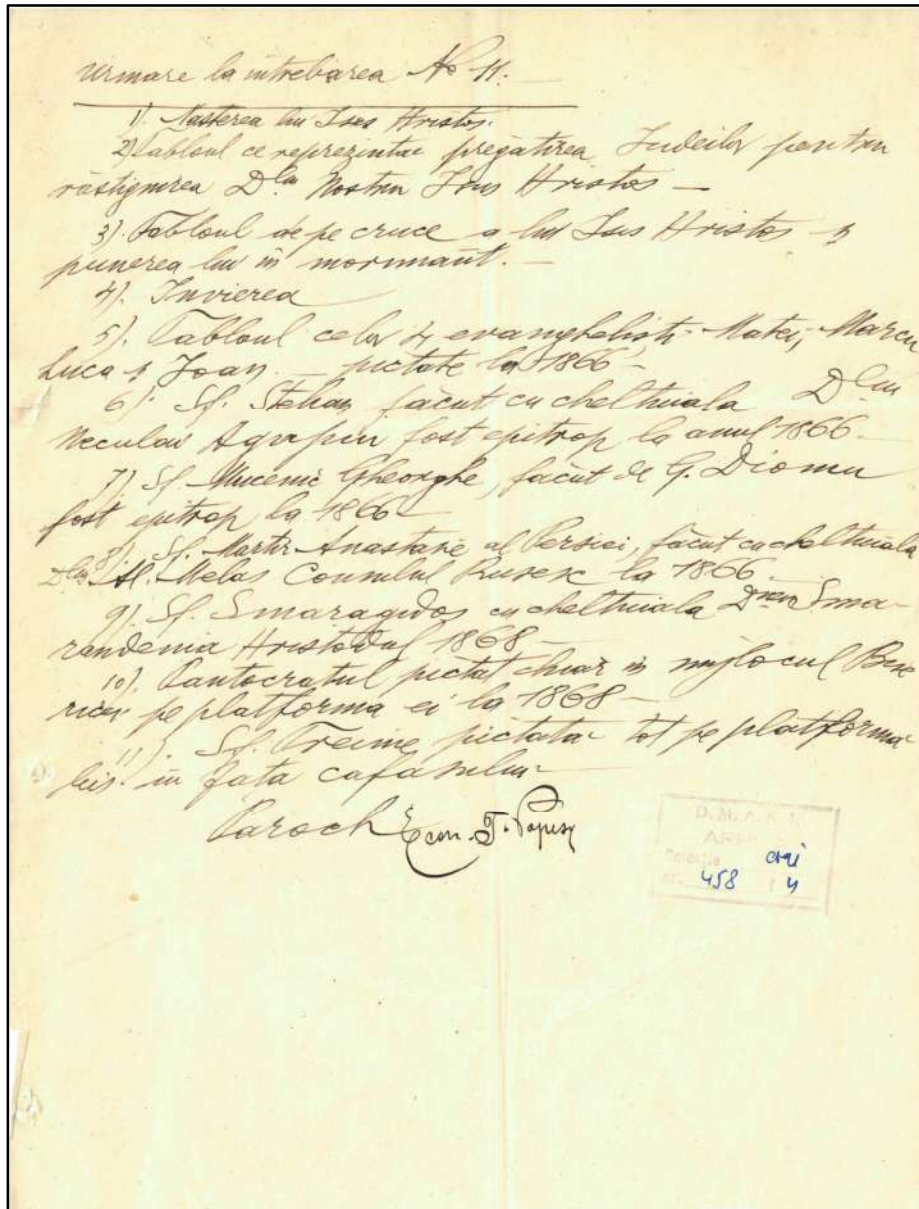 Urmare la intrebarea No 11.
1). Nasterea lui Isus Hristos.
2) Tabloul ce reprezinta pregatirea Iudeilor pentru
răstignirea Dlui Nostru Isus Hristos —
3). Tabloul de pe cruce a lui Isus Hristos și
punerea lui in mormant. —
4). Invierea
5). Tabloul celor 4 evanghelisti Matei, Marcu
Luca și Ioan. — pictate la 1866 —
6). Sf. Stefan făcut cu cheltuiala Dlui
Neculau Agapiu fost epitrop la anul 1866 —
7) Sf. Mucenic Gheorghe, făcut de G. Diomu
fost epitrop la 1866 —
8) Sf. Martir Anastasie al Persiei, făcut cu cheltuiala
Dlui Al. Melas Consulul Rusesc la 1866 —
9). Sf. Smaragdos cu cheltuiala Dnei Sma-
randenia Hristodul 1868 —
10). Pantocratul pictat chiar in mijlocul Bise
ricei pe platforma ei la 1868 —
11). Sf. Treime pictata tot pe platforma
bis. in fata cafasului
Paroch Econ. T. Popescu
D. M. A. S. N.
458 4